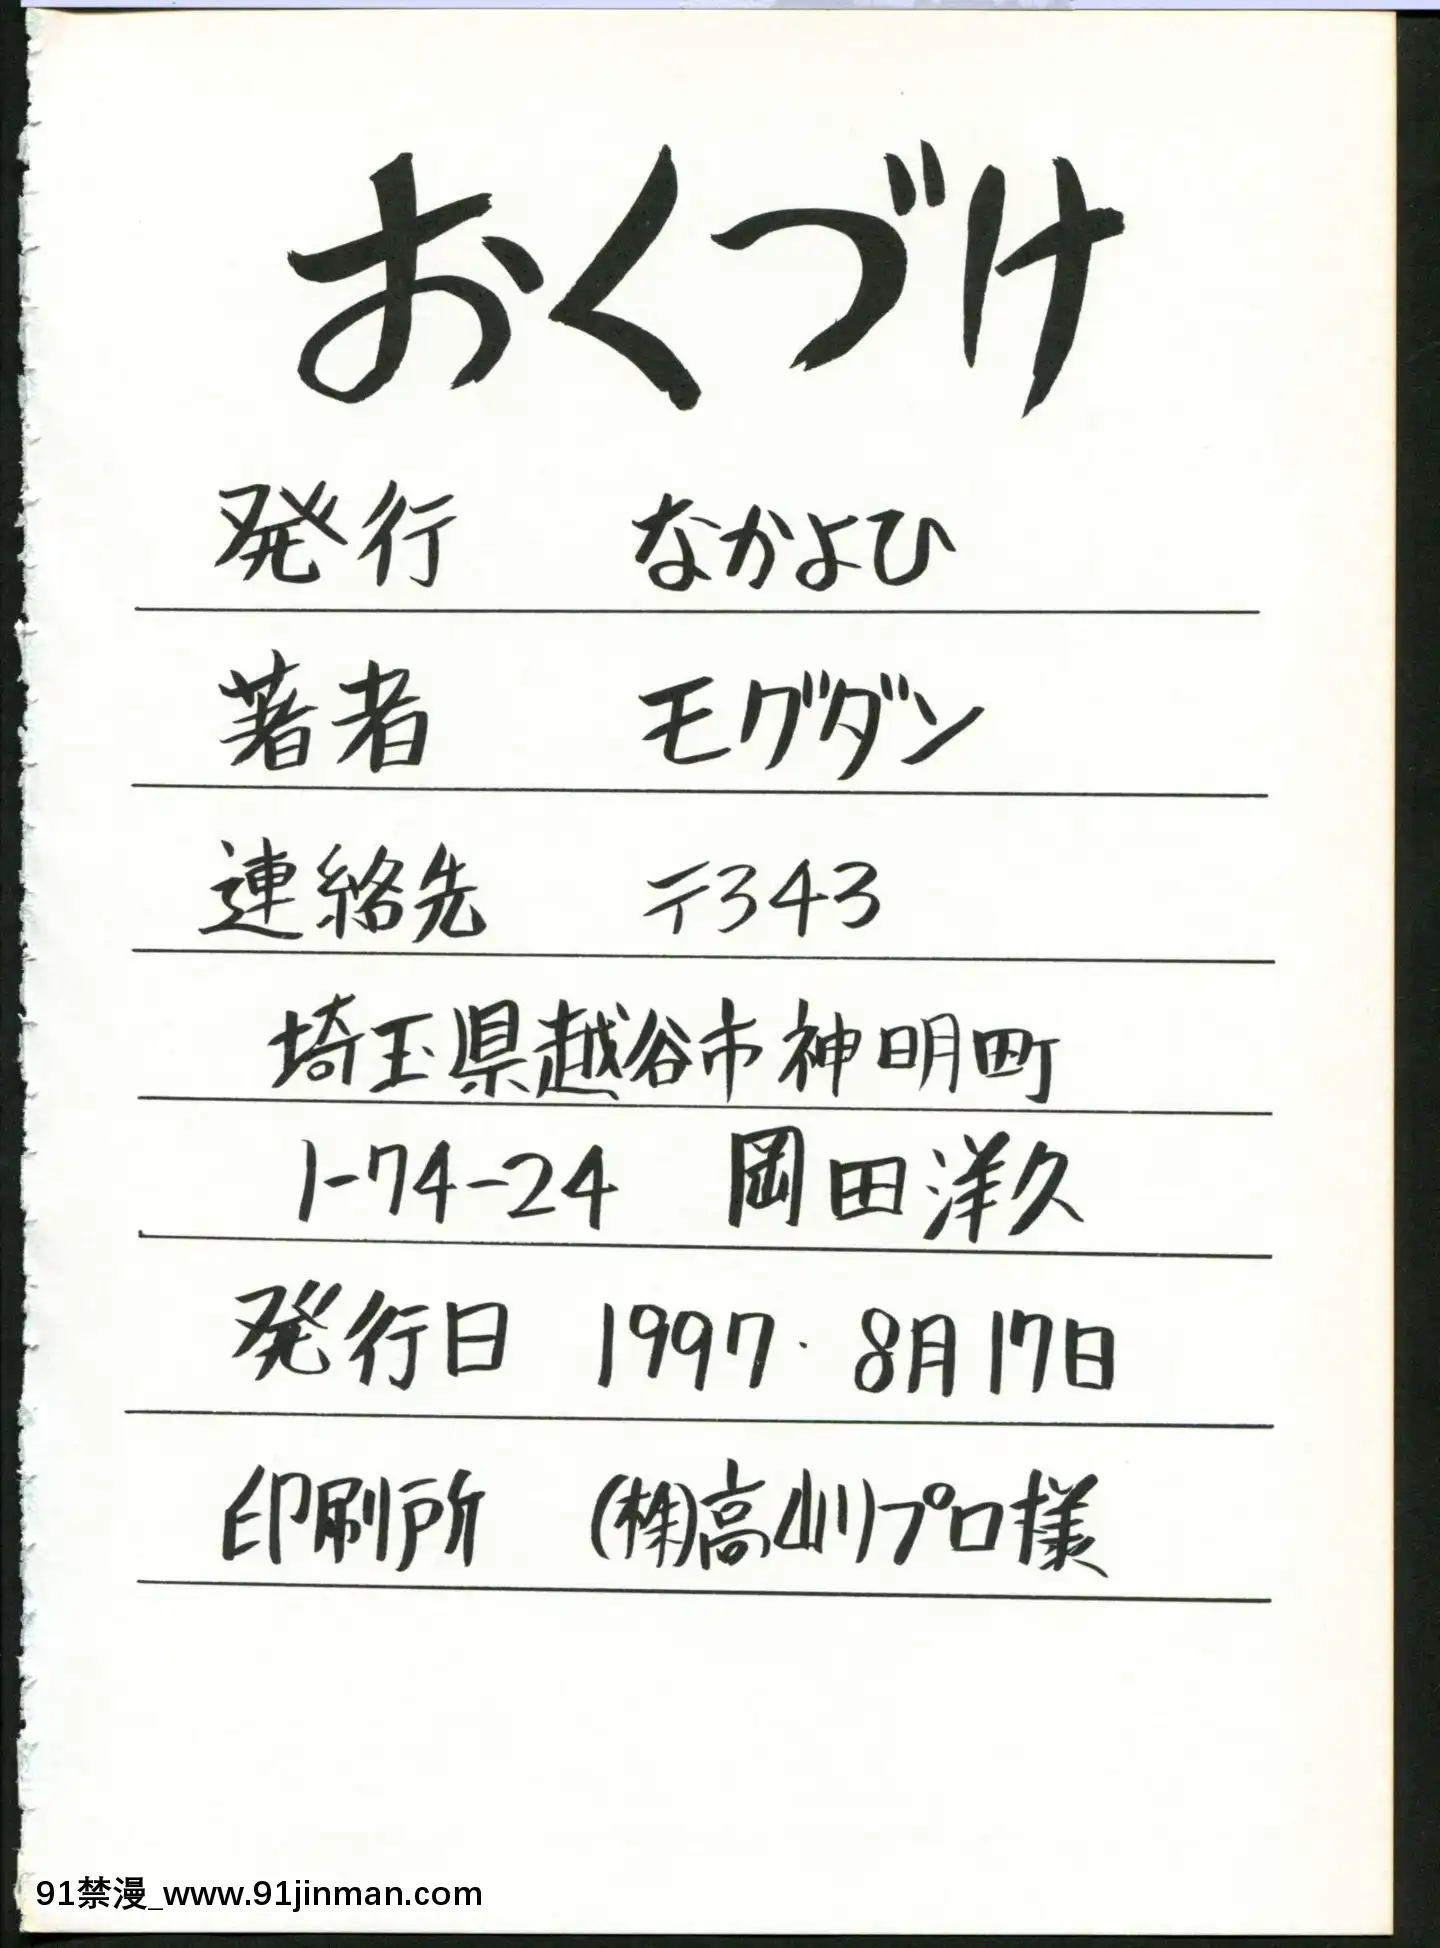 おくづけ
発行 なかよひ
著者 モグダン
連絡先 〒343
埼玉県越谷市神明町
1-74-24 岡田洋久
発行日 1997. 8月17日
印刷所 (株)高山プロ様
91禁漫_www.91jinman.com